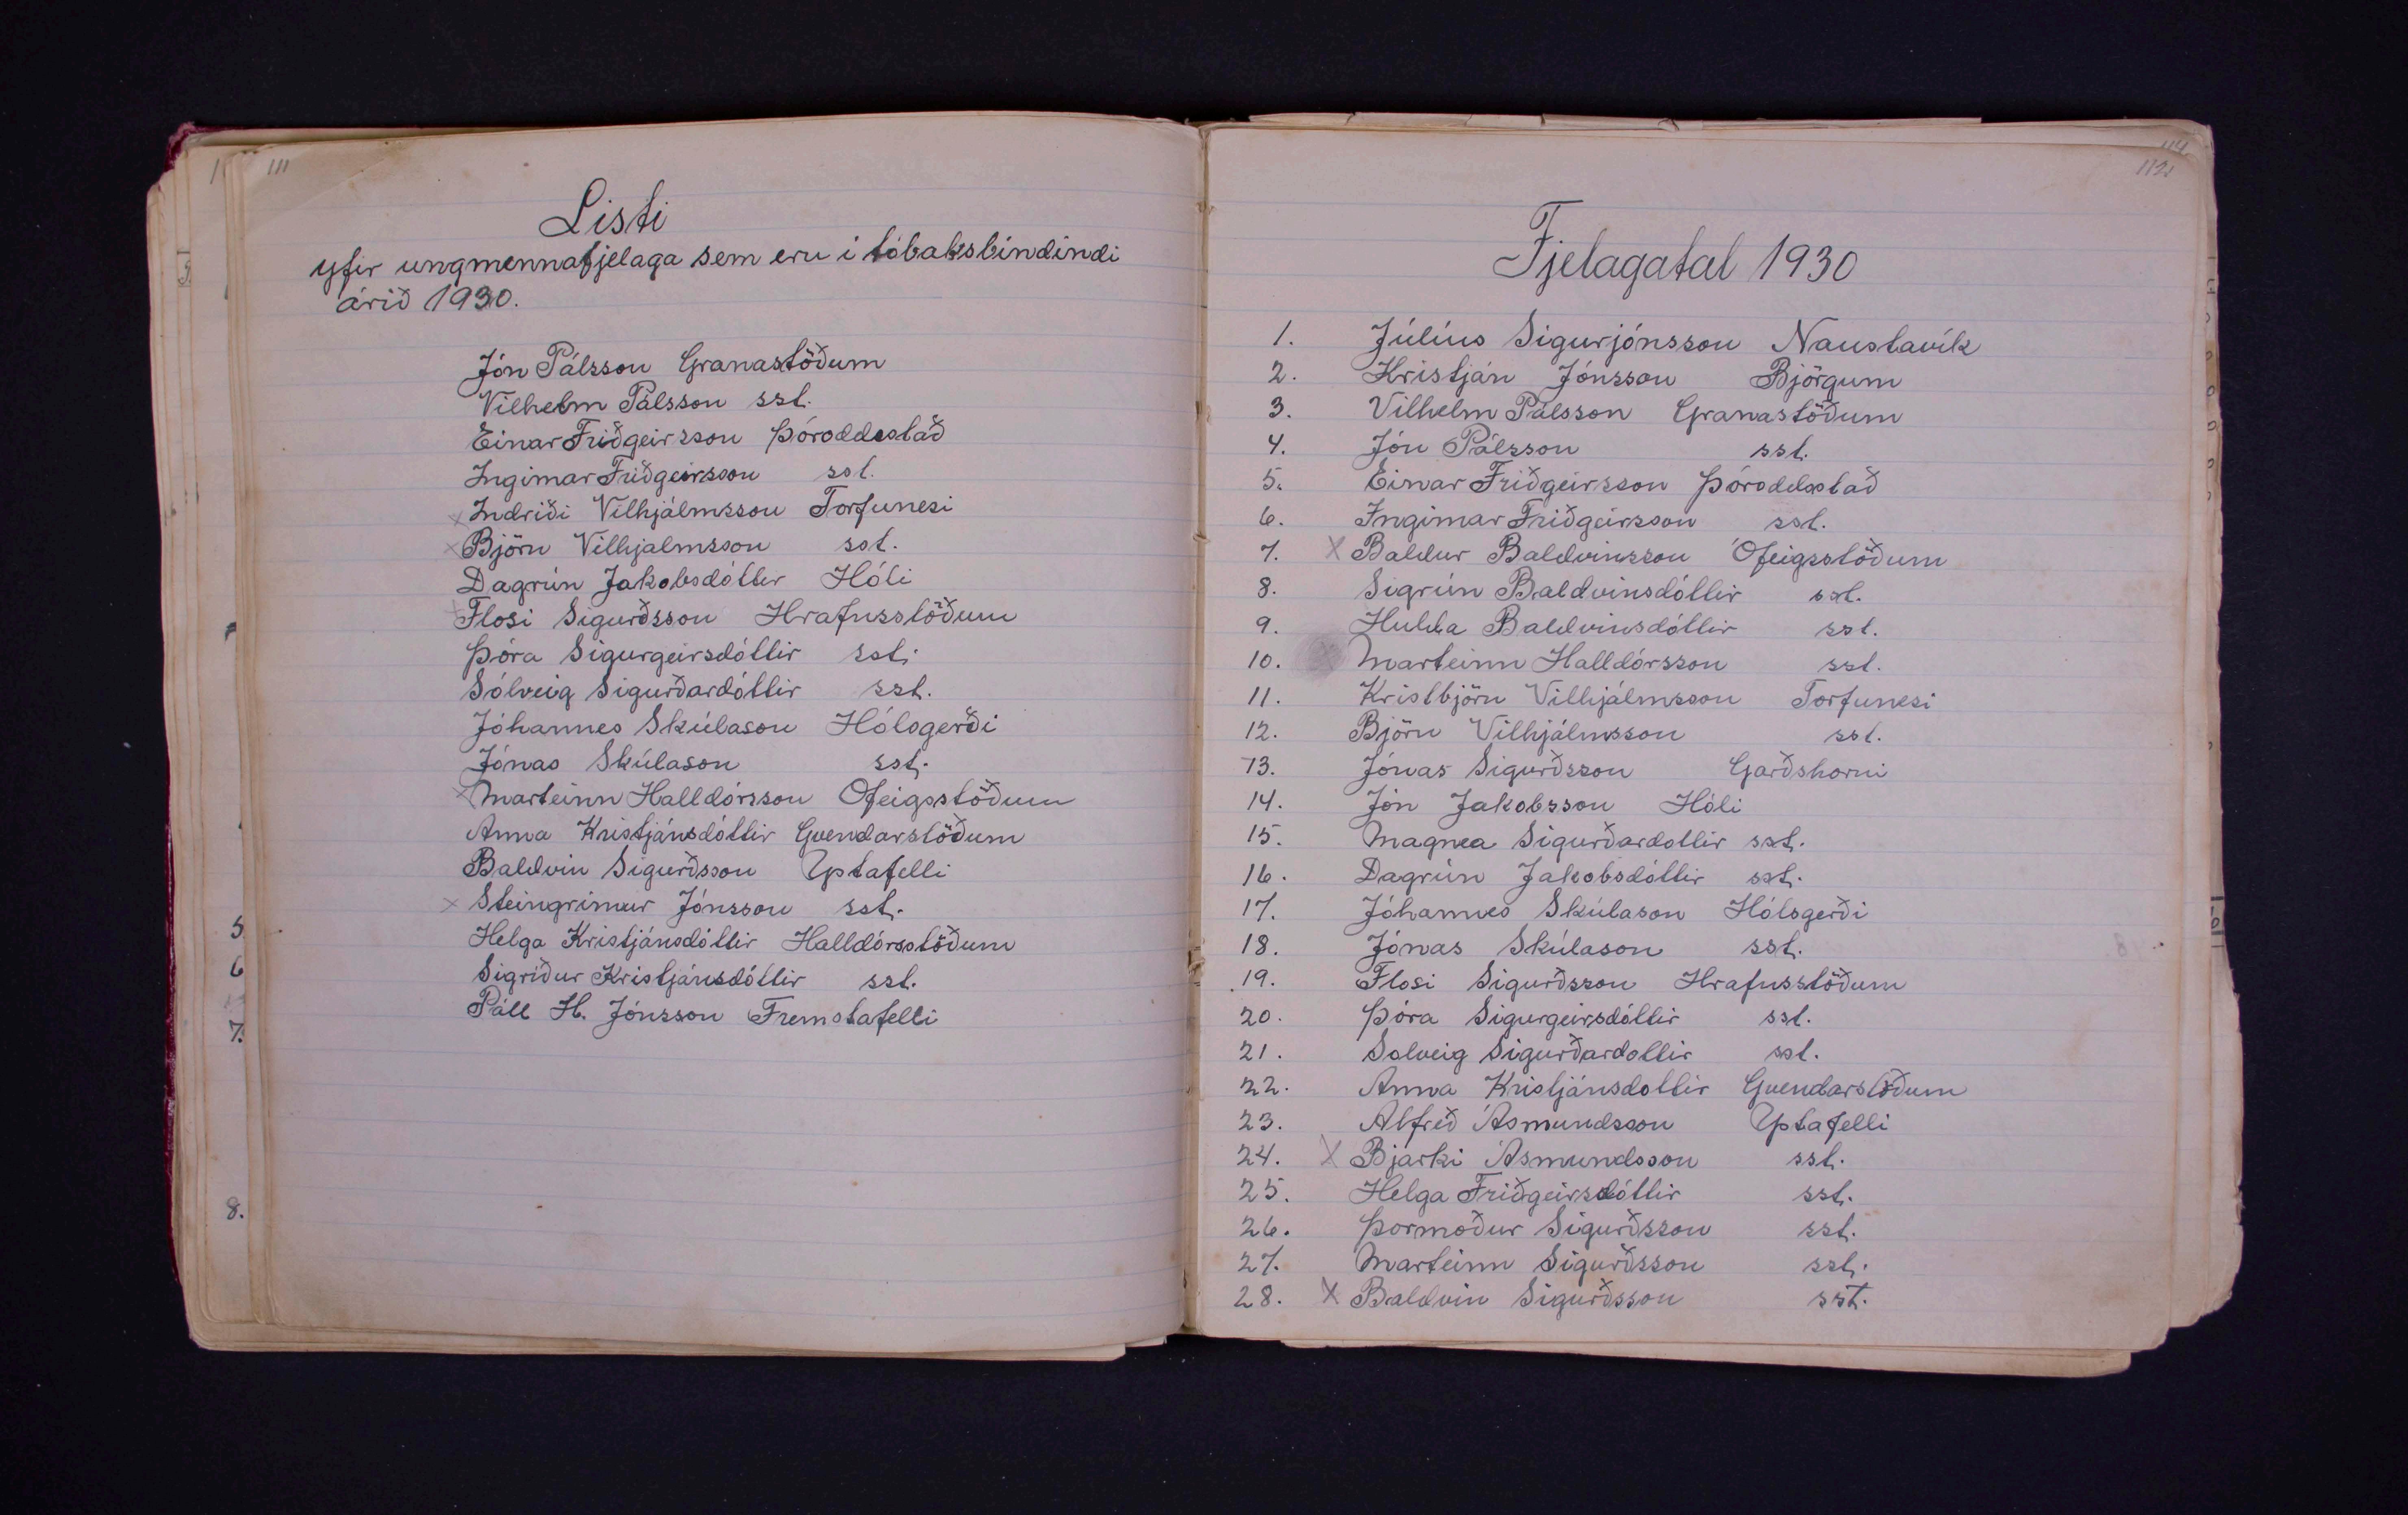 111
Listi
yfir ungmennafjelaga sem eru i tóbaksbindindi
árið 1930.
Jón Pálsson Granastöðum
Vilhelm Pálsson sst.
Einar Friðgeirsson Þóroddsstað
Ingimar Friðgeirsson sst.
x Indriði Vilhjálmsson Torfunesi
x Björn Vilhjalmsson sst.
Dagrún Jakobsdóttir Hóli
x Flosi Sigurðsson Hrafnsstöðum
Þóra Sigurgeirsdóttir sst.
Sólveig Sigurðardóttir sst.
Jóhannes Skúlason Hólsgerði
Jónas Skúlason sst.
x Marteinn Halldórsson Ofeigsstöðum
Anna Kristjánsdóttir Gvendarstöðum
Baldvin Sigurðsson Ystafelli
x Steingrimur Jónsson sst.
Helga Kristjánsdóttir Halldórsstöðum
Sigríður Kristjánsdóttir sst.
Páll H. Jónsson Fremstafelli
5
6
7.
8.
114.
112.
Fjelagatal 1930
1. Júlíus Sigurjónsson Naustavík
2. Kristján Jónsson Björgum
3. Vilhelm Pálsson Granastöðum
4. Jón Pálsson sst.
5. Einar Friðgeirsson Þóroddsstað
6. Ingimar Friðgeirsson sst.
7. X Baldur Baldvinsson Ófeigsstöðum
8. Sigrún Baldvinsdóttir sst.
9. Hulda Baldvinsdóttir sst.
10. x Marteinn Halldórsson sst.
11. Kristbjörn Vilhjálmsson Torfunesi
12. Björn Vilhjálmsson sst.
13. Jónas Sigurðsson Garðshorni
14. Jón Jakobsson Hóli
15. Magnea Sigurðardottir sst.
16. Dagrún Jakobsdóttir sst.
17. Jóhannes Skúlason Hólsgerði
18. Jónas Skúlason sst.
19. Flosi Sigurðsson Hrafnsstöðum
20. Þóra Sigurgeirsdóttir sst.
21. Solveig Sigurðardottir sst.
22. Anna Kristjánsdottir Gvendarstöðum
23. Alfreð Ásmundsson Ystafelli
24. X Bjarki Ásmundsson sst.
25. Helga Friðgeirsdóttir sst.
26. Þormoður Sigurðsson sst.
27. Marteinn Sigurðsson sst.
28. X Baldvin Sigurðsson sst.